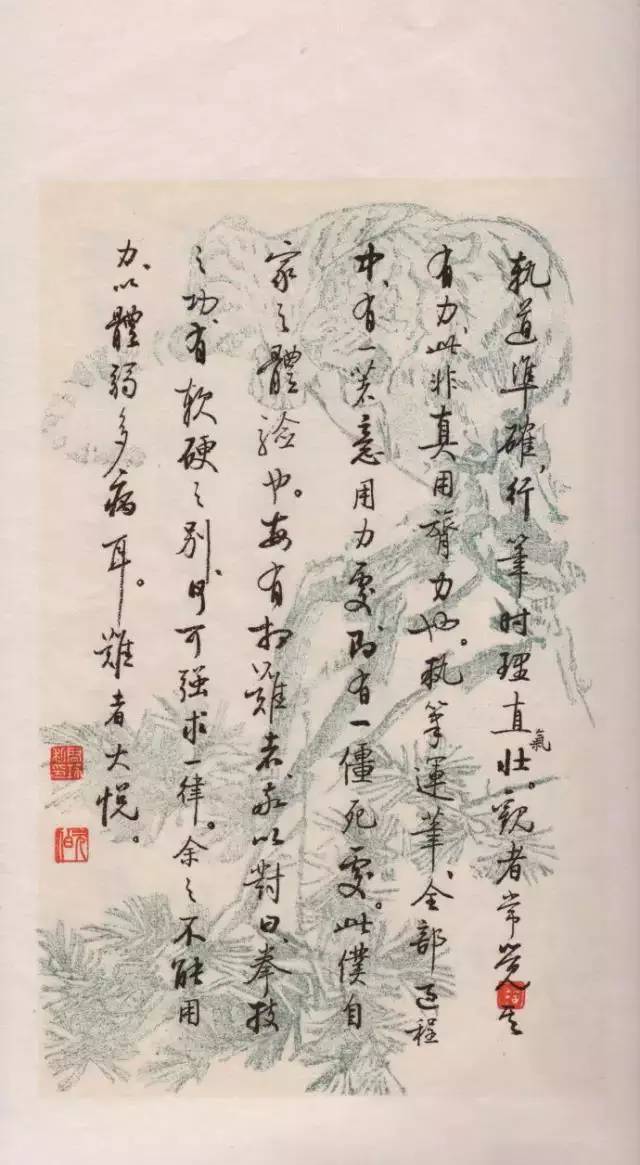 軌道準確，行筆时理直氣壯。觀者常覺其
有力，此非真用膂力也。執筆運筆，全部过程
中，有一着意用力處，即有一僵死處。此僕自
家之體验也。每有相難者，敬以對曰，拳技
之功，有软硬之别，何可强求一律。余之不能用
力，以體弱多病耳。難者大悦。